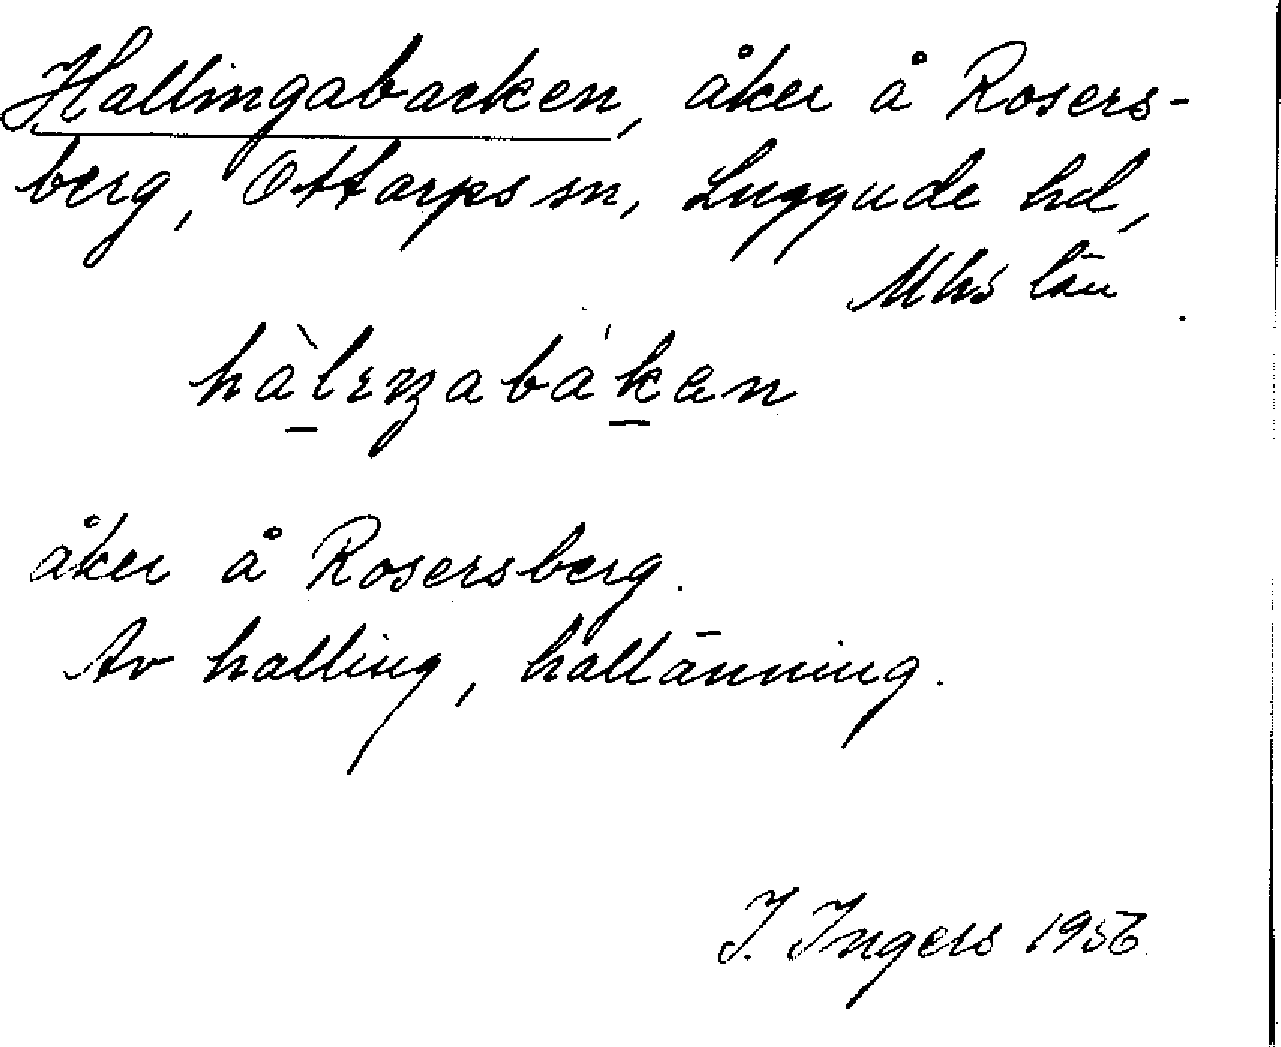 Hallingabacken, åker å Rosers-
berg, Ottarps sn, Luggude hd,
Mhs län.
hàlıŋabákan
åker å Rosersberg.
Av halling, hallänning.
I. Ingers 1956